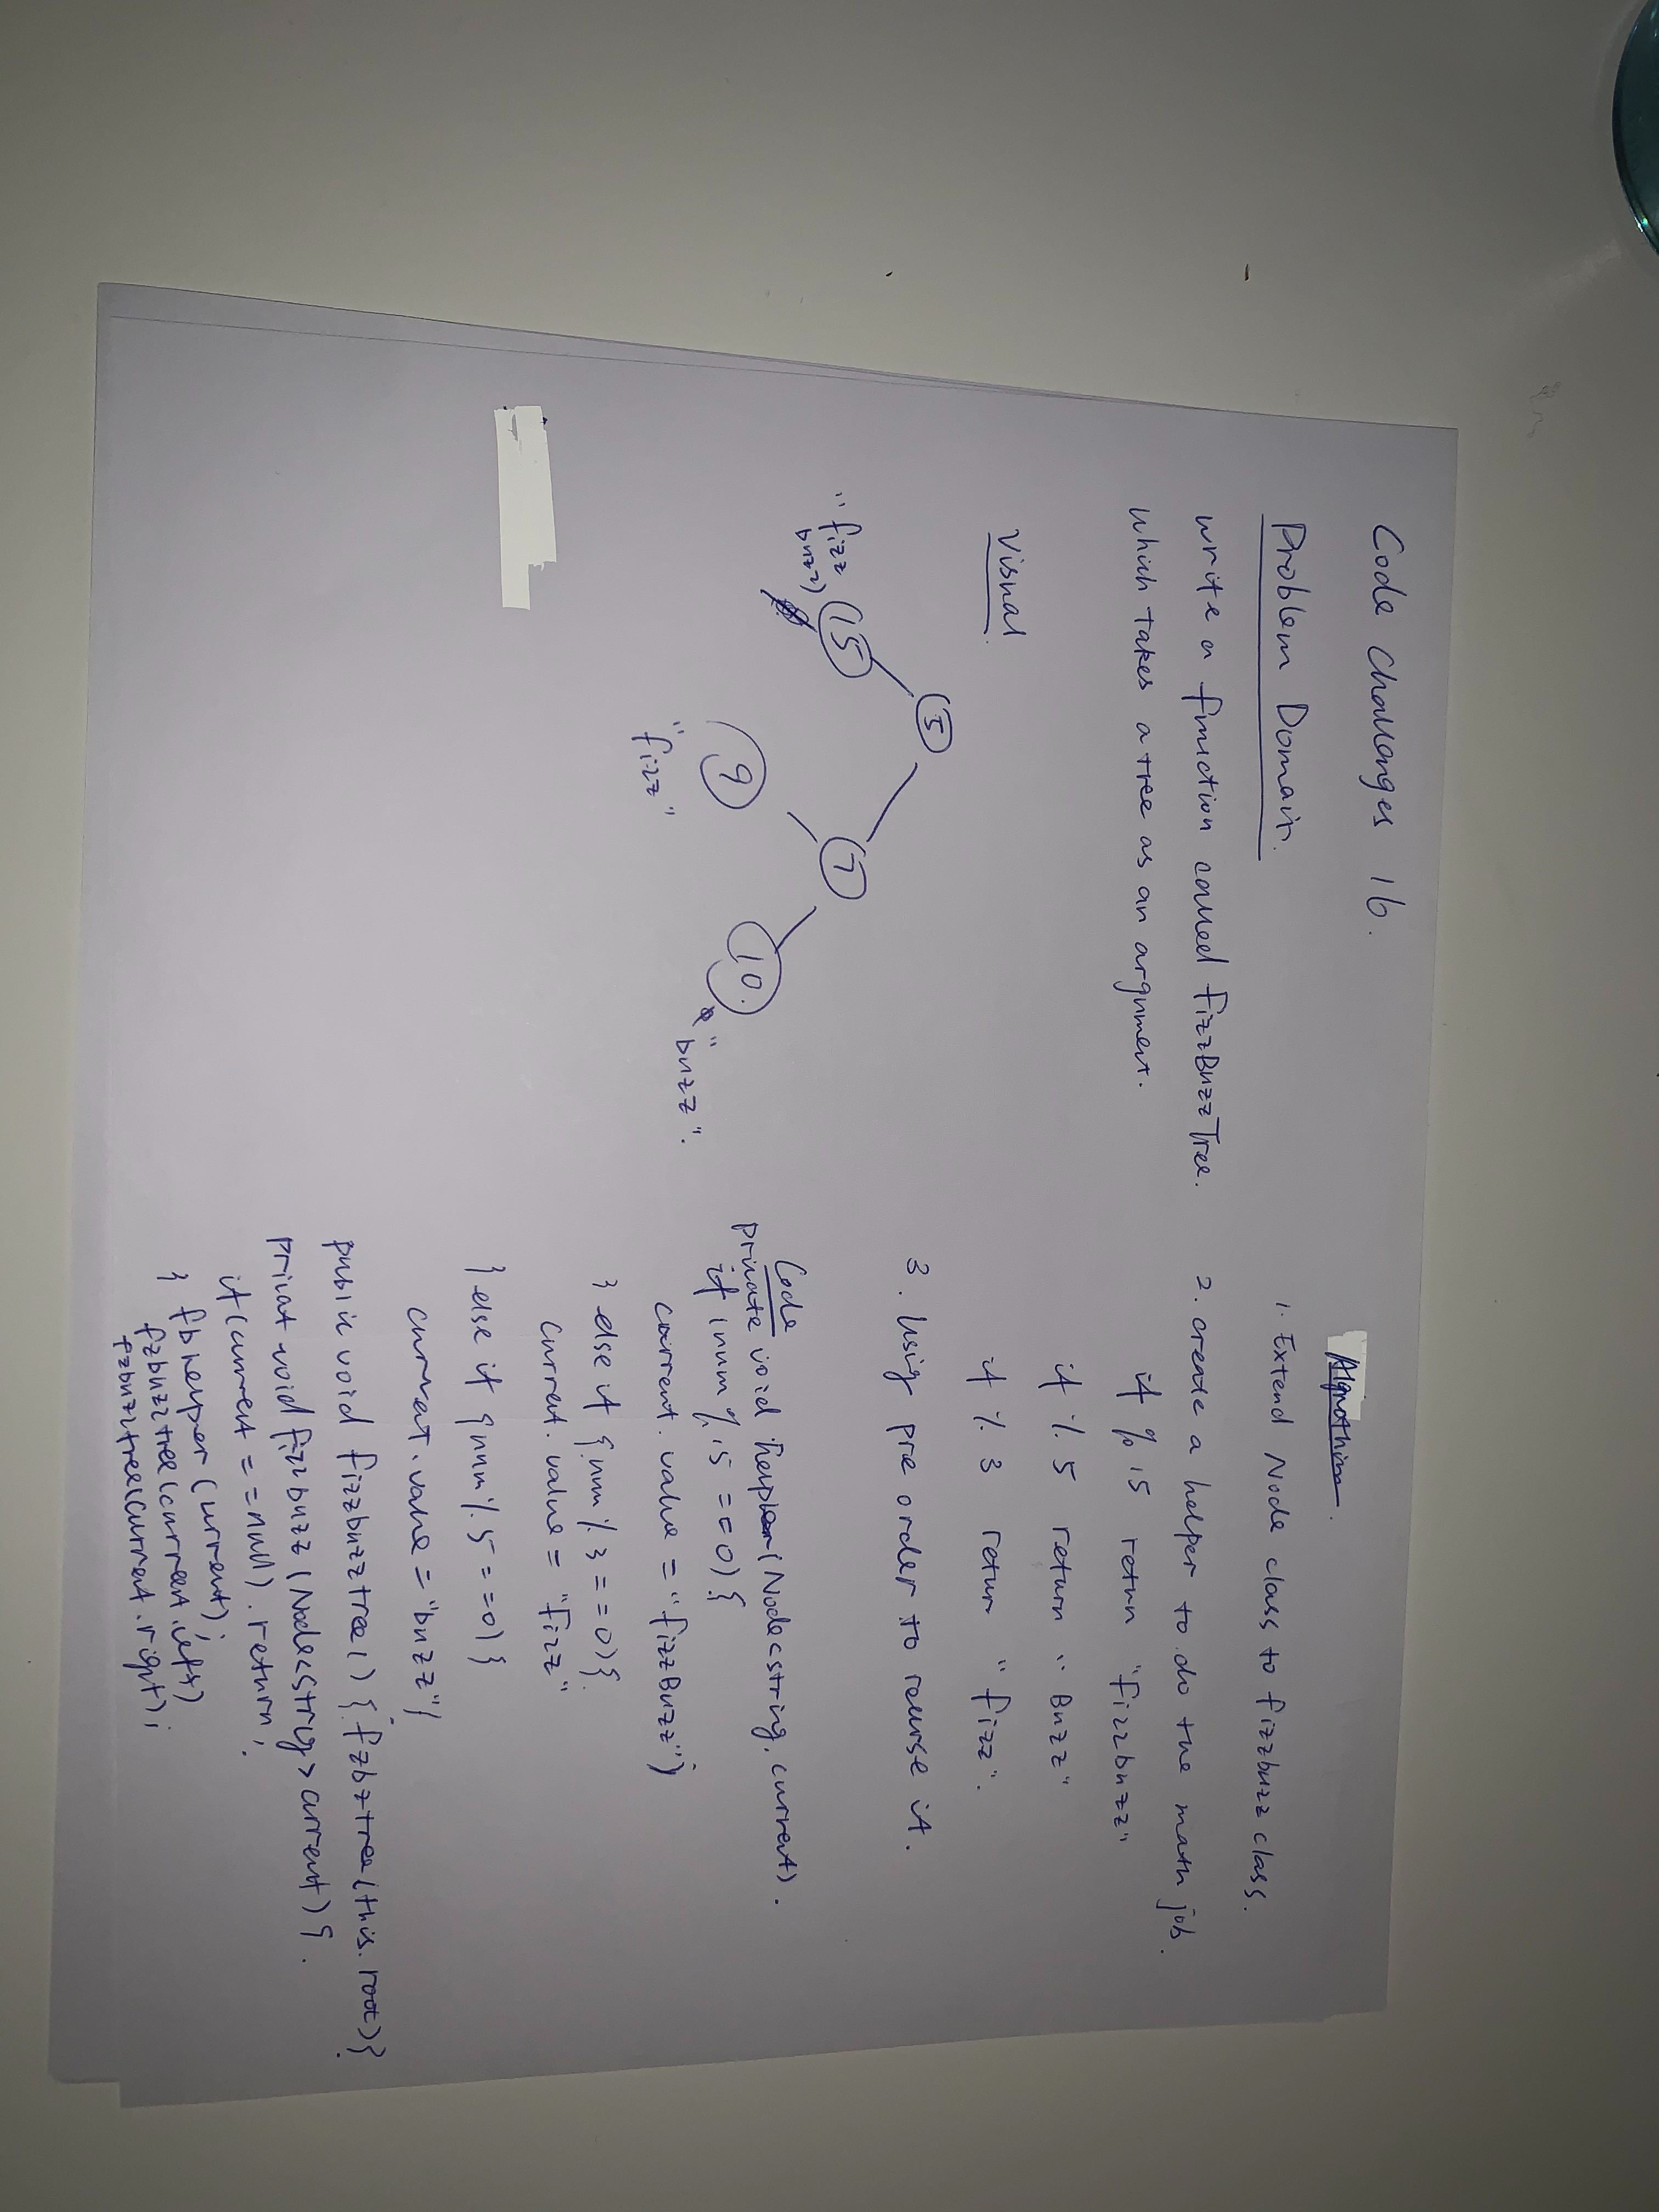 Code Challenges 16.
Problem Domain.
write a function called FizzBuzzTree.
which takes a tree as an argument.
Visual
5
15
7
9
10.
"fizz
buzz"
"fizz"
"buzz".
Algorithm
1. Extend Node class to fizzbuzz class.
2. create a helper to do the math job.
if % 15 return "fizzbuzz"
if % 5 return "Buzz"
if % 3 return "fizz".
3. Using pre order to recurse it.
Code
private void helper(Node<string, current).
if (num % 15 == 0) {
current.value = "fizzBuzz";
} else if {num % 3 == 0) {
current.value = "fizz"
} else if {num % 5 == 0) {
current.value = "buzz"}
public void fizzbuzztree() { fzbztree(this.root)}
privat void fizzbuzz (Node<String> current) {
if(current == null). return;
fbhelper (current);
} fzbuzztree(current.left)
fzbuzztree(current.right);